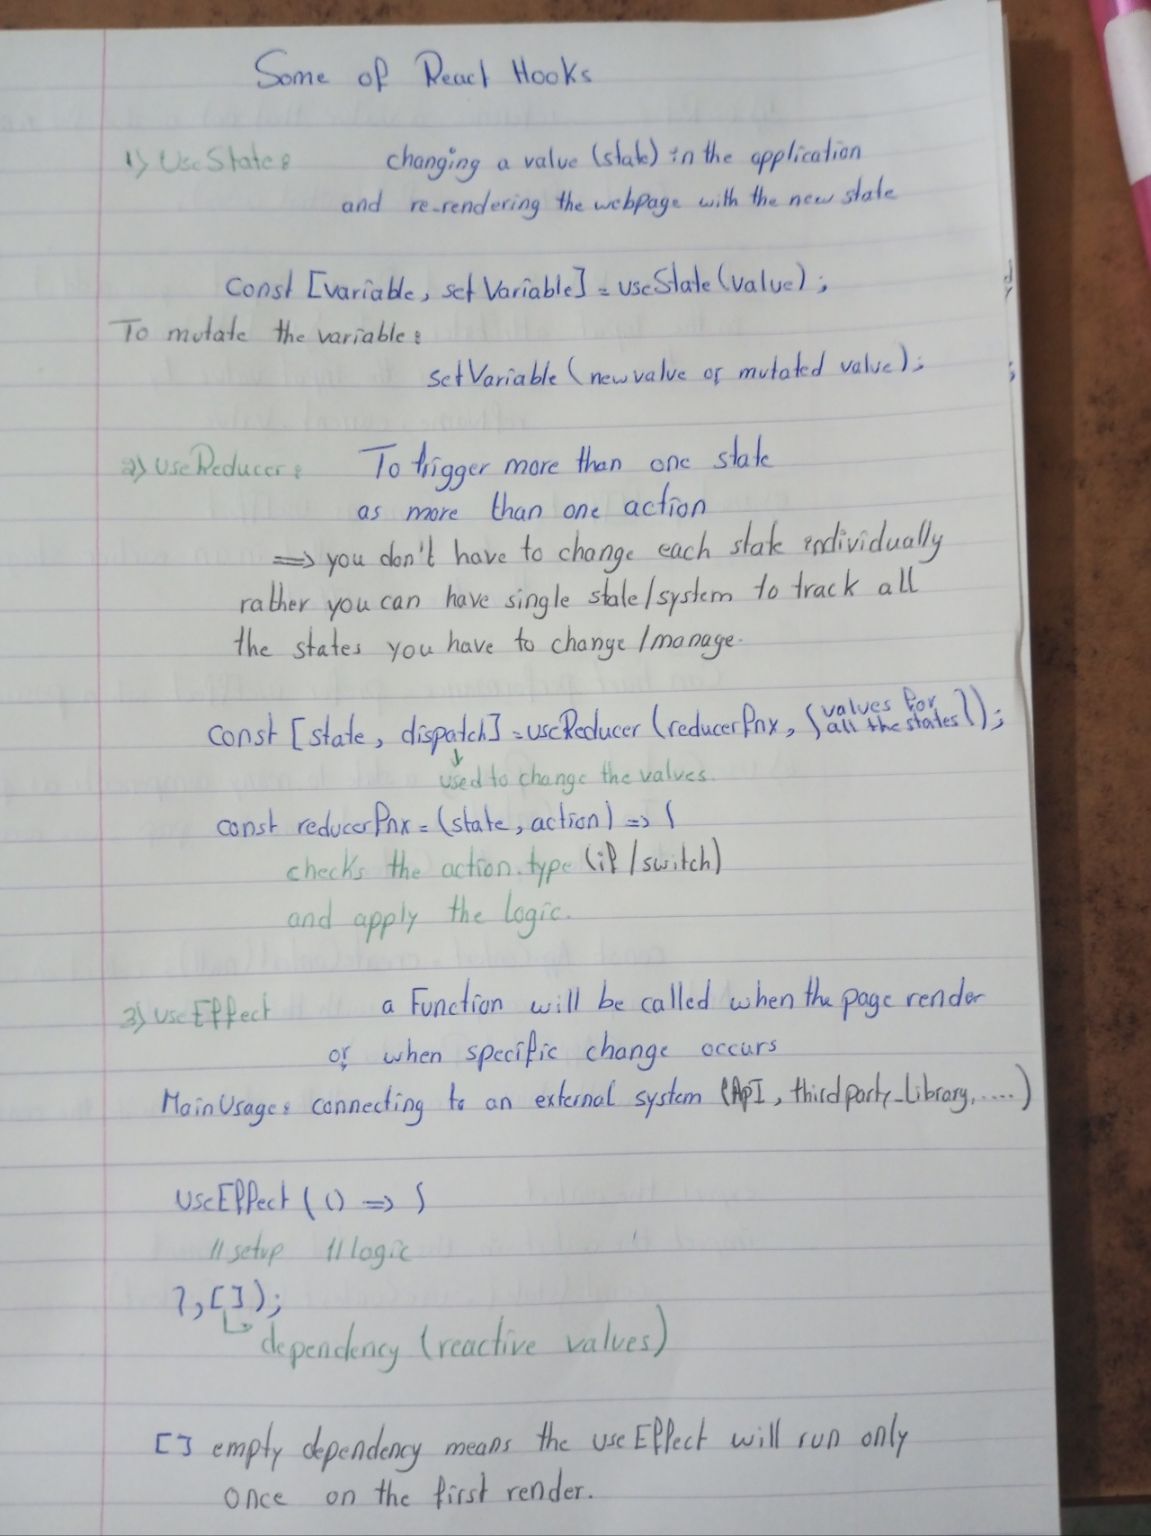 Some of React Hooks
1) UseState:
changing a value (state) in the application
and re-rendering the webpage with the new state
const [variable, setVariable] = useState(value);
To mutate the variable:
setVariable (new value or mutated value);
2) useReducer:
To trigger more than one state
as more than one action
=> you don't have to change each state individually
rather you can have single state/system to track all
the states you have to change/manage.
const [state, dispatch] = useReducer (reducerFnx, {values for
all the states});
used to change the values.
const reducerFnx = (state, action) => {
checks the action.type (if/switch)
and apply the logic.
3) useEffect
a Function will be called when the page render
or when specific change occurs
Main Usage: connecting to an external system (API, thirdparty_Library, ....)
UseEffect (() => {
//setup //logic
}, []);
dependency (reactive values)
[] empty dependency means the useEffect will run only
once on the first render.